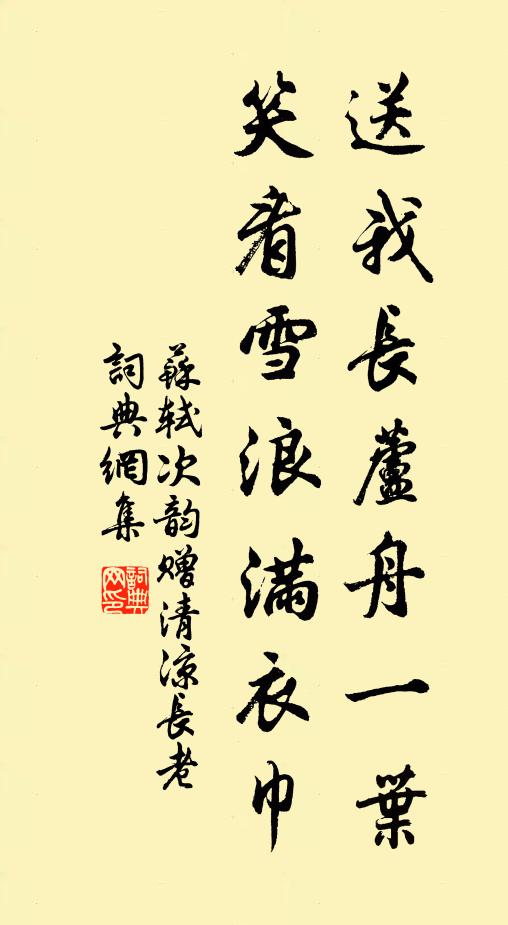 送我長蘆舟一葉
笑看雪浪滿衣巾
蘇軾次韵贈清涼長老
詞典網集
詞典网印